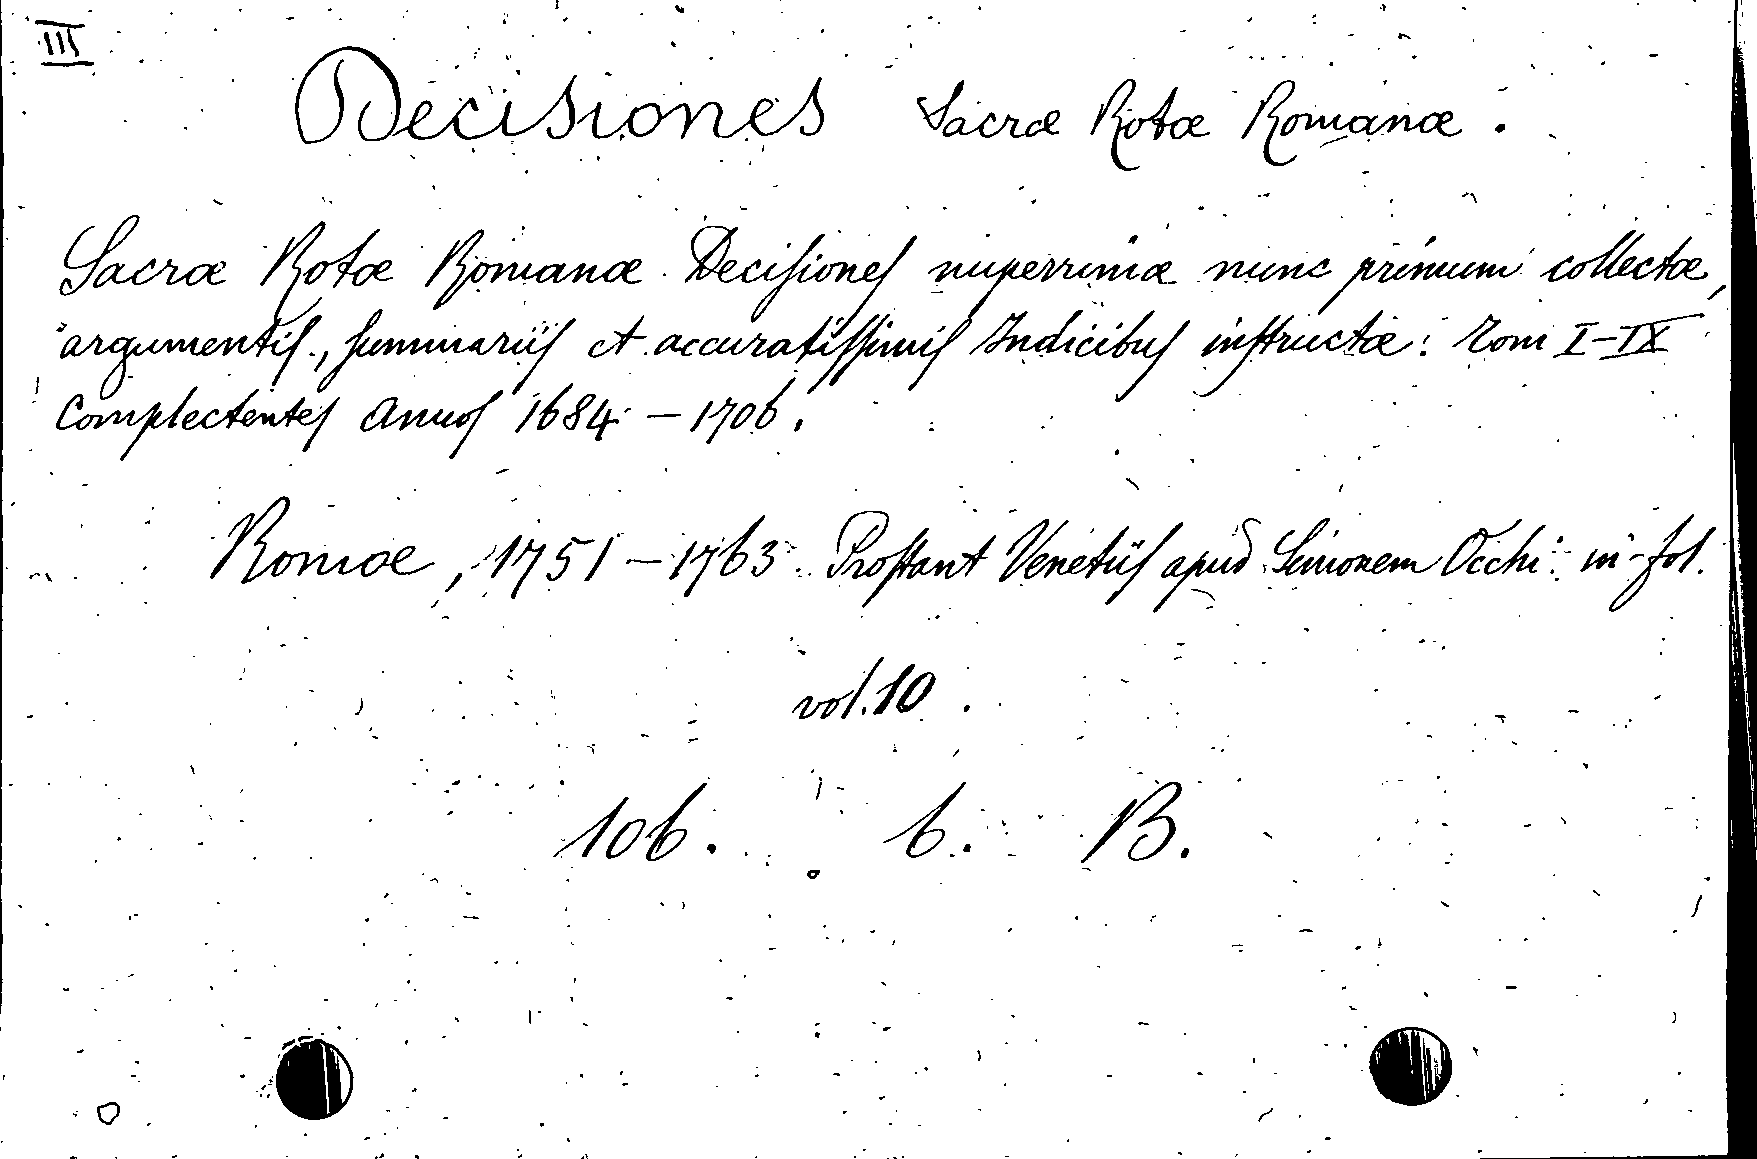 III
Decisiones Sacræ Rotæ Romanæ.
Sacræ Rotæ Romanæ Decisiones nuperrimæ nunc primum collectæ,
argumentis, summariis et accuratissimis Indicibus instructæ: Tom I-IX
Complectentes Annos 1684 - 1706.
Romae, 1751 - 1763. Prostant Venetiis apud Simonem Occhi: in-fol.
vol. 10.
106. 6. B.